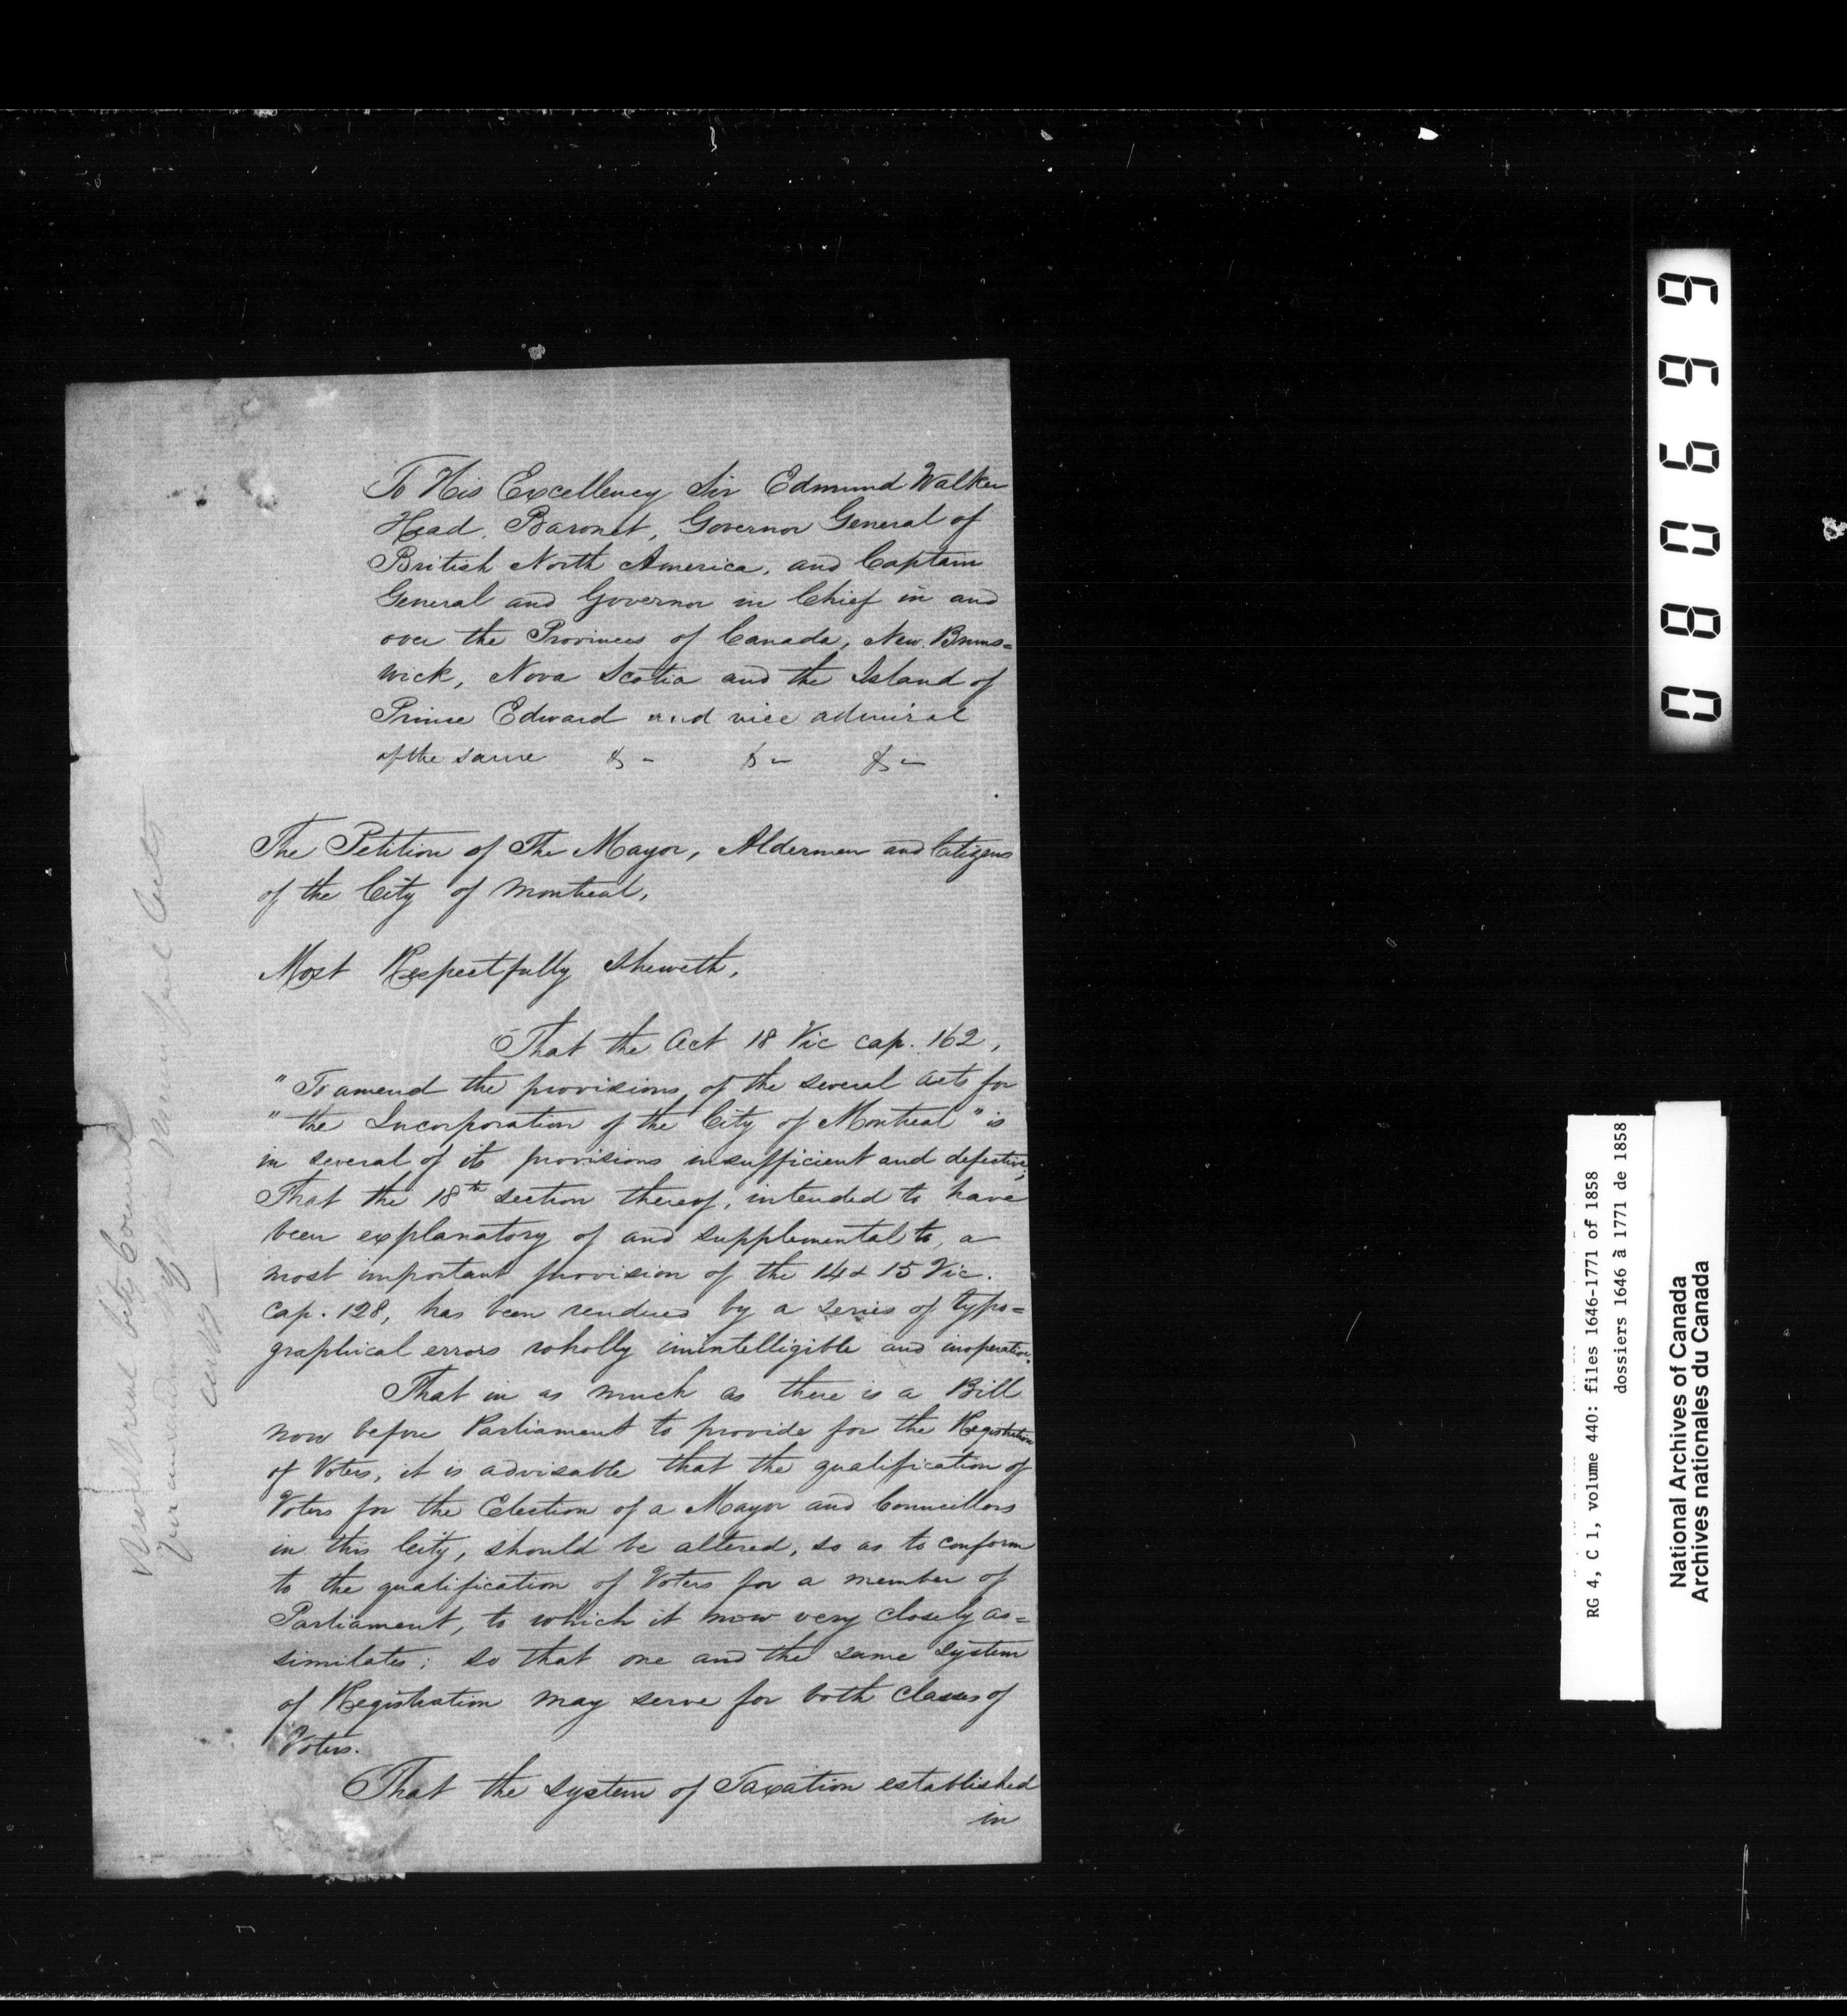 To His Excellency Sir Edmund Walker
Head, Baronet, Governor General of
British North America, and Captain
General and Governor in Chief in and
over the Provinces of Canada, New Bruns=
wick, Nova Scotia and the Island of
Prince Edward and vice admiral
of the same &c - &c - &c -
The Petition of The Mayor, Aldermen and Citizens
of the City of Montreal,
Most Respectfully Sheweth,
That the Act 18 Vic cap. 162,
"To amend the provisions of the several acts for
"the Incorporation of the City of Montreal" is
in several of its provisions insufficient and defective;
That the 18th section thereof, intended to have
been explanatory of and supplemental to, a
most important provision of the 14 & 15 Vic.
cap. 128, has been rendered by a series of typo=
graphical errors wholly unintelligible and inoperative.
That in as much as there is a Bill
now before Parliament to provide for the Registration
of Voters, it is advisable that the qualification of
Voters for the Election of a Mayor and Councillors
in this City, should be altered, so as to conform
to the qualification of Voters for a member of
Parliament, to which it now very closely as=
similates; so that one and the same system
of Registration may serve for both classes of
Voters.
That the system of Taxation established
in
Montreal City Council
for amendment of Municipal Acts
080699
RG 4, C 1, volume 440: files 1646-1771 of 1858
dossiers 1646 à 1771 de 1858
National Archives of Canada
Archives nationales du Canada